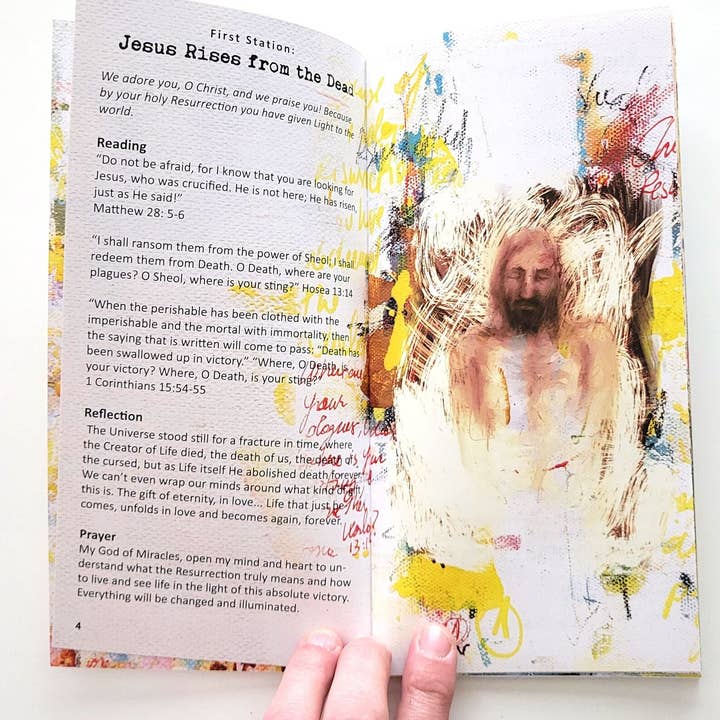 First Station:
Jesus Rises from the Dead
We adore you, O Christ, and we praise you! Because
by your holy Resurrection you have given Light to the
world.
Reading
"Do not be afraid, for I know that you are looking for
Jesus, who was crucified. He is not here; He has risen,
just as He said!"
Matthew 28: 5-6
"I shall ransom them from the power of Sheol; I shall
redeem them from Death. O Death, where are your
plagues? O Sheol, where is your sting?" Hosea 13:14
"When the perishable has been clothed with the
imperishable and the mortal with immortality, then
the saying that is written will come to pass: "Death has
been swallowed up in victory." "Where, O Death, is
your victory? Where, O Death, is your sting?"
1 Corinthians 15:54-55
Reflection
The Universe stood still for a fracture in time, where
the Creator of Life died, the death of us, the death of
the cursed, but as Life itself He abolished death forever.
We can't even wrap our minds around what kind of gift
this is. The gift of eternity, in love... Life that just be-
comes, unfolds in love and becomes again, forever.
Prayer
My God of Miracles, open my mind and heart to un-
derstand what the Resurrection truly means and how
to live and see life in the light of this absolute victory.
Everything will be changed and illuminated.
4
your
13:
1
1